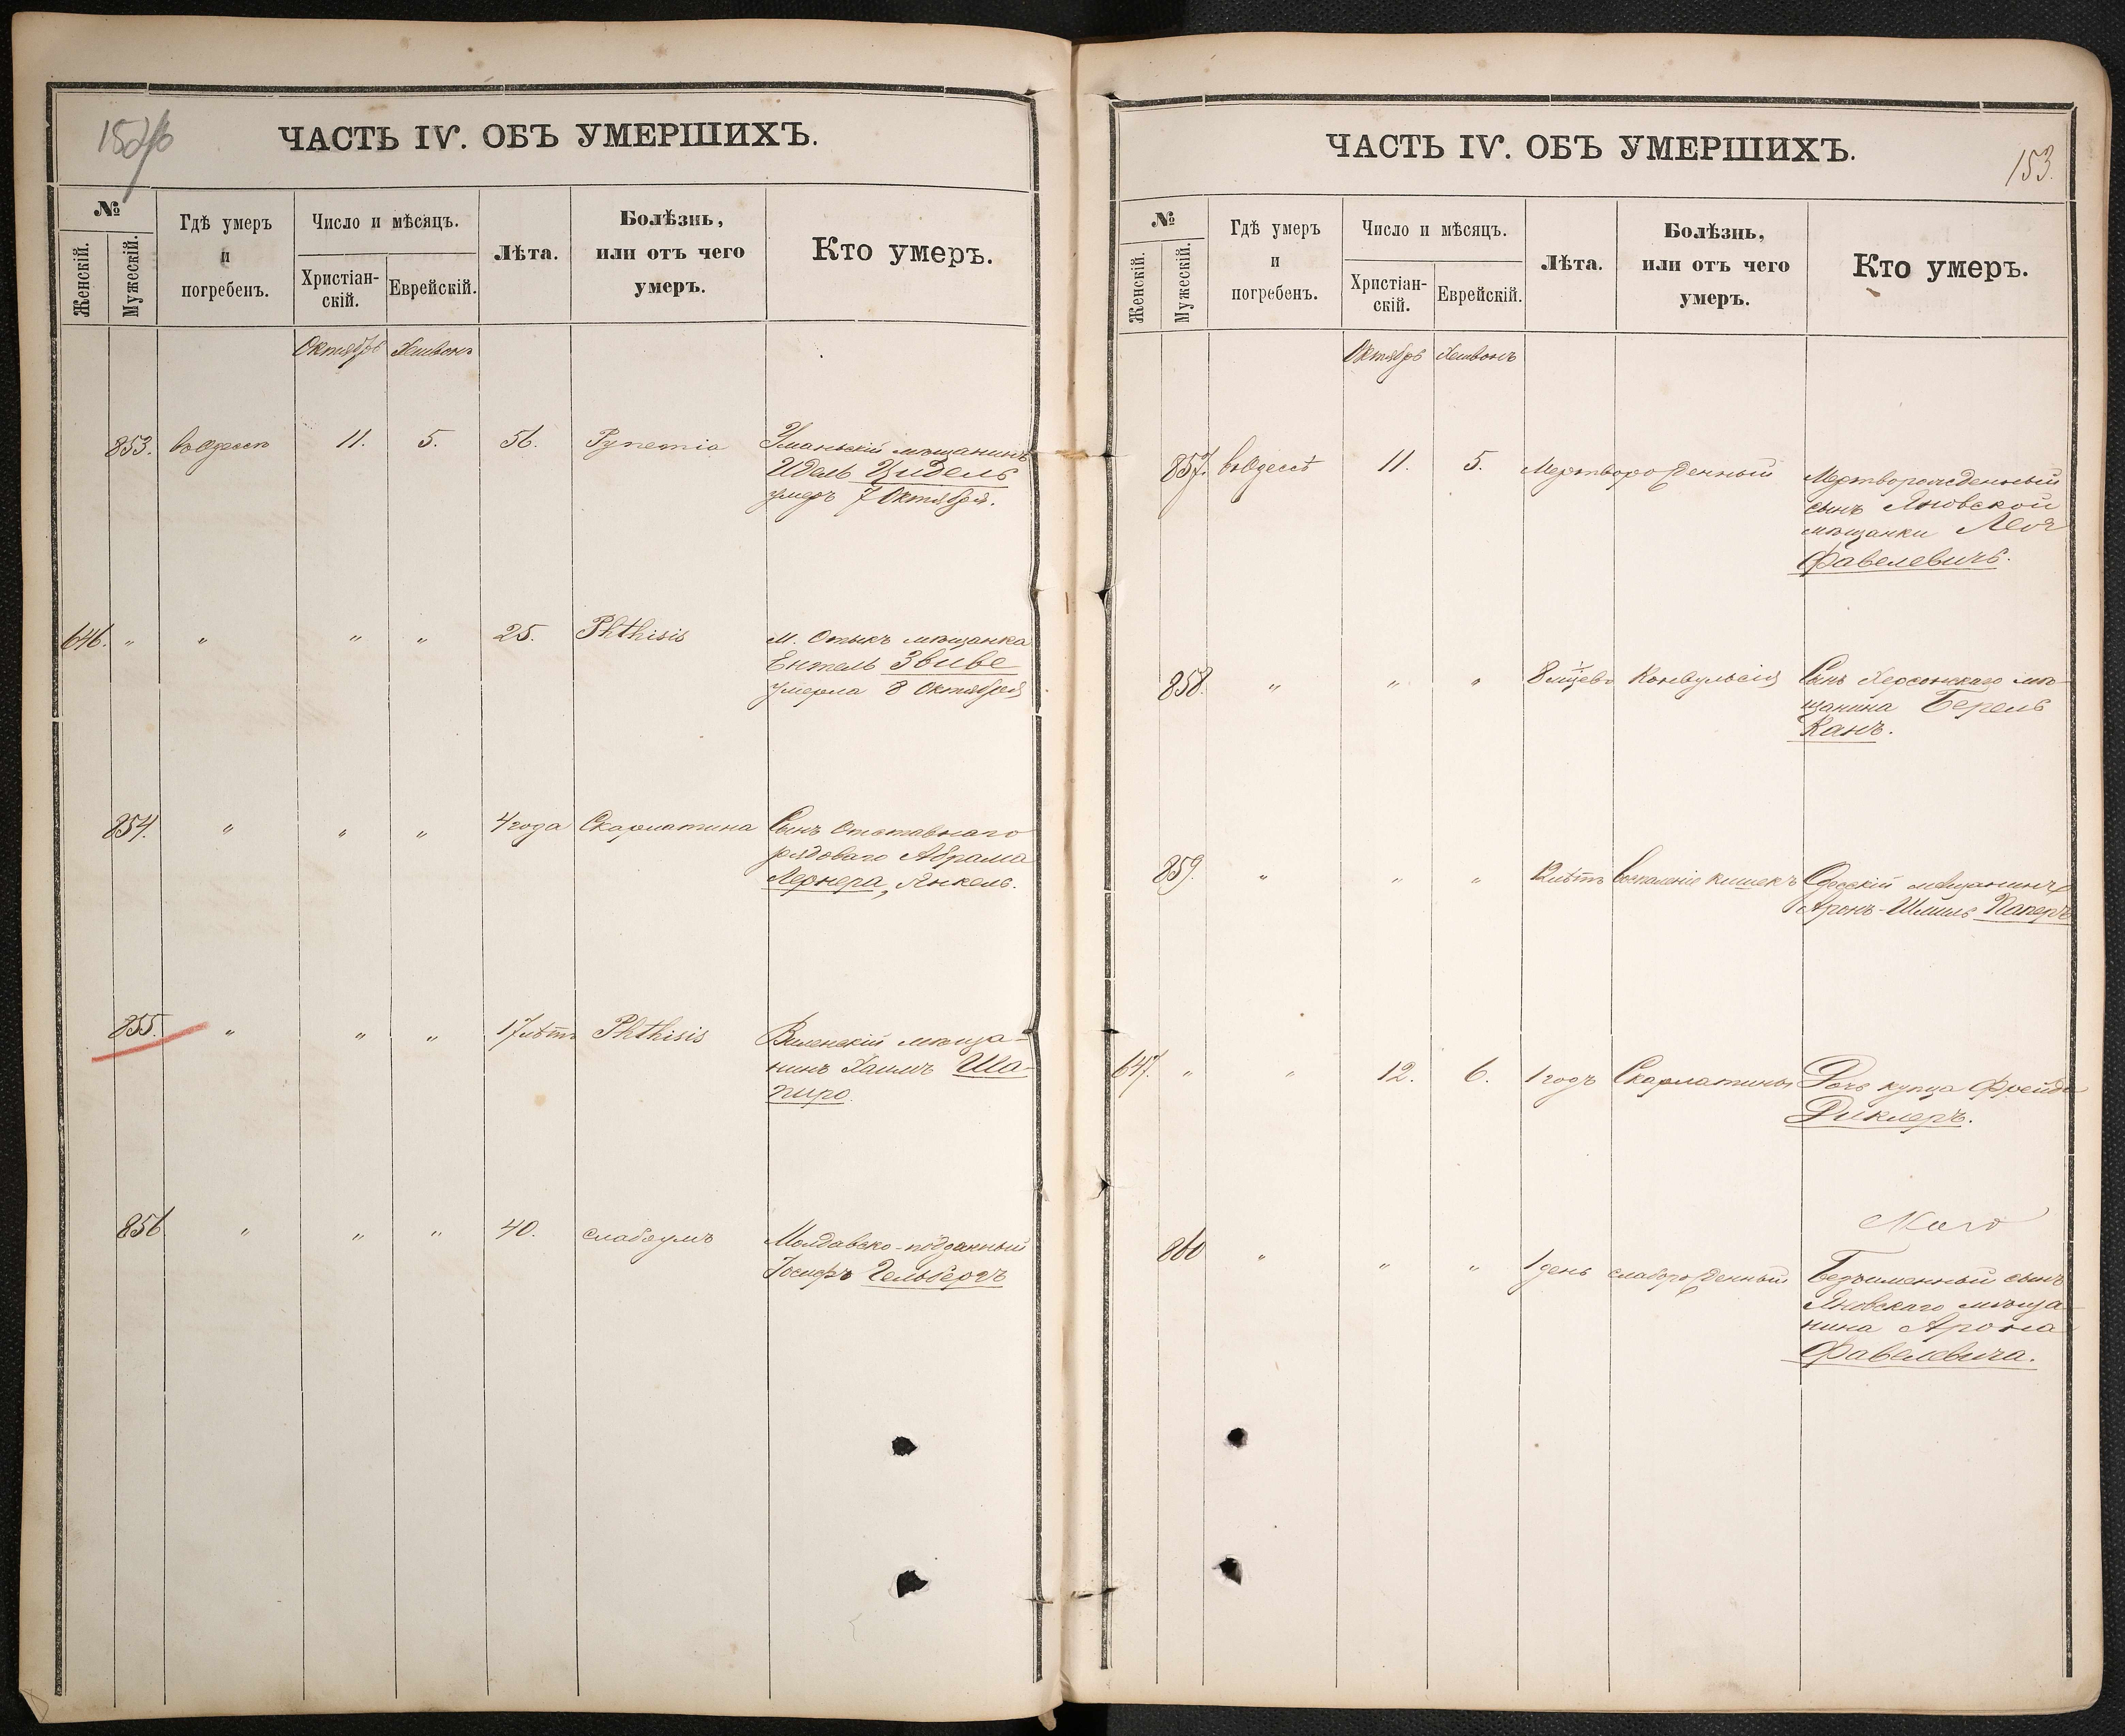 152/б
ЧАСТЬ IV. ОБЪ УМЕРШИХЪ.
№
Женскій.
Мужескій.
Гдѣ умеръ
и
погребенъ.
Число и мѣсяцъ.
Христіан-
скій.
Еврейскій.
Лѣта.
Болѣзнь,
или отъ чего
умеръ.
Кто умеръ.
Октябрь Хешвонъ
853. въ Одессѣ 11. 5. 56. Pynemia Уманьскій мѣщанинъ
Идель Цидель
умеръ 7 Октября.
646. " " " " 25. Phthisis м. мѣщанка
Ентель Звиве
умерла 8 Октября
854. " " " 4 года Скарлатина Сынъ Отставнаго
рядоваго Абрама
Лернера, Янкель.
855. " " " 17 лѣтъ Phthisis Виленскій мѣща-
нинъ Хаимъ Ша-
пиро.
856 " " " 40. слабоумъ Молдавско-подданный
Іосифъ Гельбергъ
ЧАСТЬ IV. ОБЪ УМЕРШИХЪ.
153.
№
Женскій.
Мужескій.
Гдѣ умеръ
и
погребенъ.
Число и мѣсяцъ.
Христіан-
скій.
Еврейскій.
Лѣта.
Болѣзнь,
или отъ чего
умеръ.
Кто умеръ.
Октябрь Хешвонъ
857. въ Одессѣ 11. 5. Мертворожденный Мертворожденный
сынъ Яновской
мѣщанки Леи
Фавелевичъ.
858. " " " 8 мцевъ Конвульсія Сынъ Херсонскаго мѣ-
щанина Берель
Канъ.
859. " " " 12 лѣтъ Воспаленіе кишекъ Одесскій мѣщанинъ
Аронъ-Шмиль Паперъ
647. " " 12. 6. 1 годъ Скарлатины Дочь купца Фрейда
Диклеръ.
860 " " " 1 день слаборожденный Безъименный сынъ
Яновскаго мѣща-
нина Арона
Фавелевича.